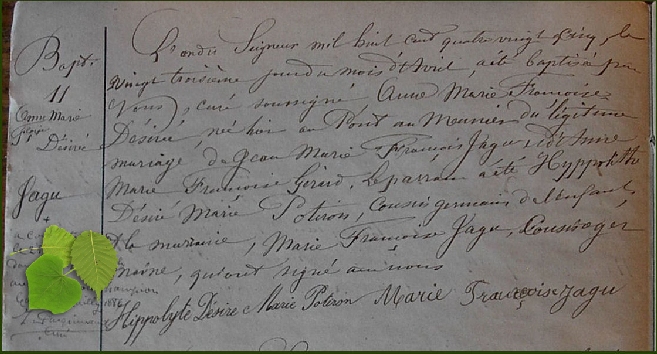 Bapt.
11
Anne Marie
Désirée
Jagu
L'an du Seigneur mil huit cent quatre vingt cinq, le
vingt troisième jour du mois d'Avril, a été baptisée par
Nous, curé soussigné Anne Marie Françoise
Désirée, née hier au Pont au Meunier du légitime
mariage de Jean Marie François Jagu, et d'Anne
Marie Françoise Gérard, le parrain a été Hyppolithe
Désiré Marie Potiron, Cousin germain de l'enfant,
et la marraine, Marie Françoise Jagu, Cousine ger
maine, qui ont signé avec nous
Hippolyte Désiré Marie Potiron Marie Françoise Jagu